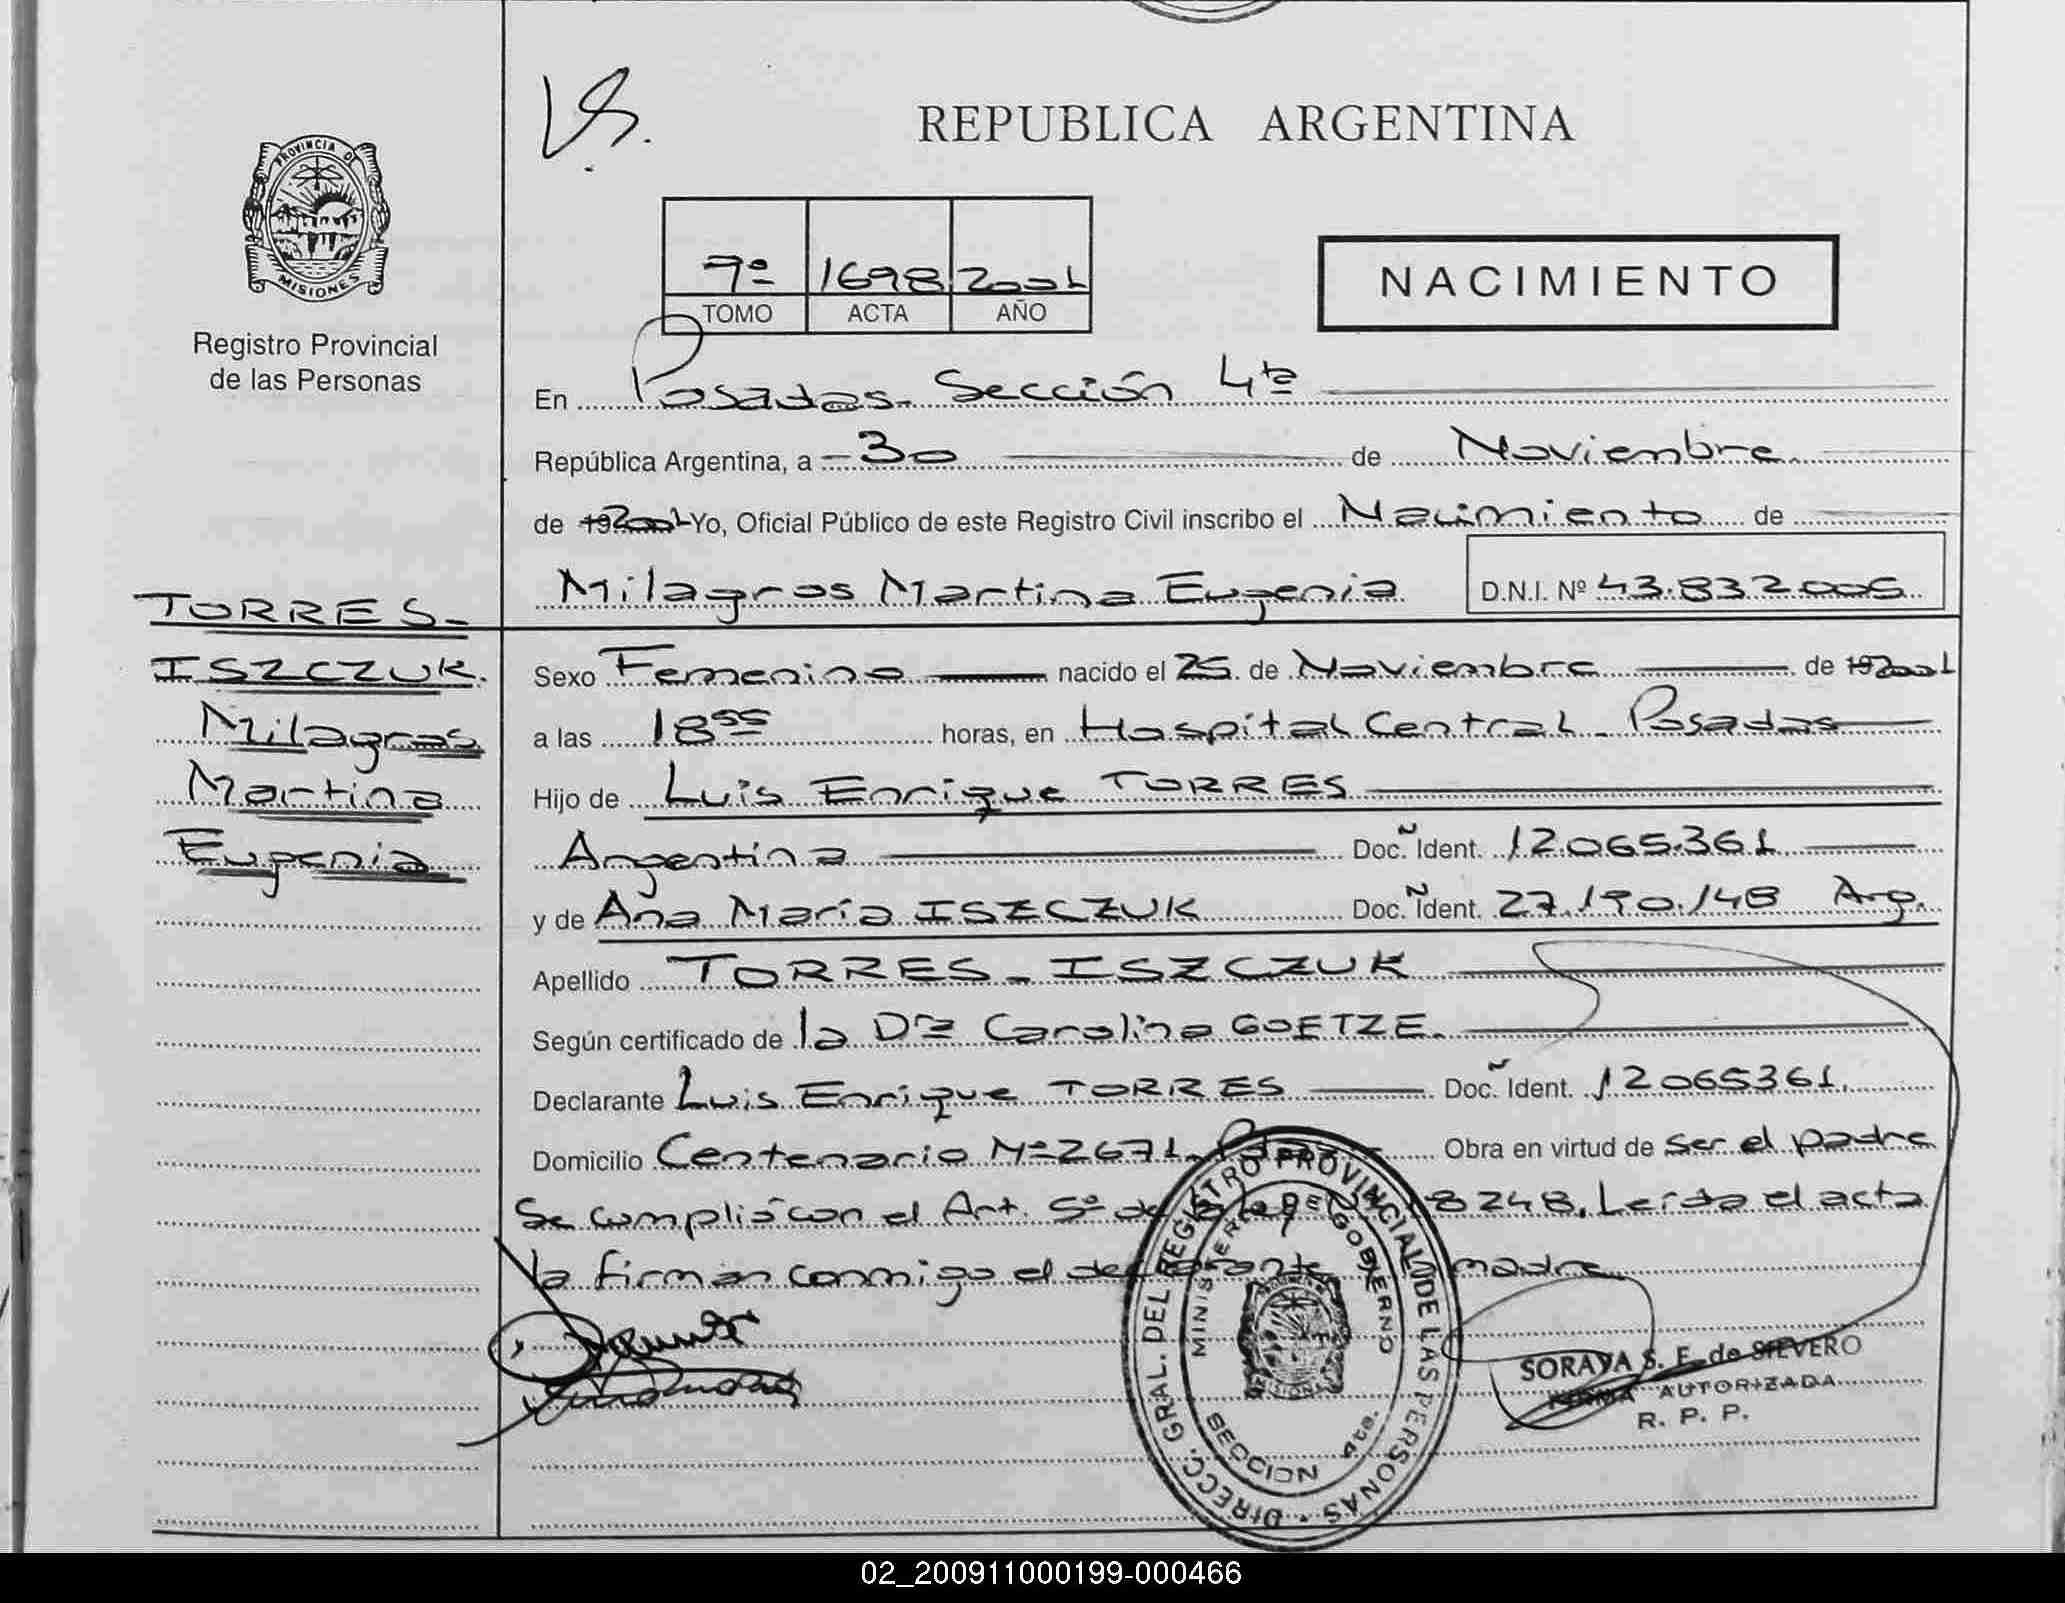 REPUBLICA ARGENTINA
PROVINCIA DE
MISIONES
Registro Provincial
de las Personas
7º 1698 2001
TOMO ACTA AÑO
NACIMIENTO
En Posadas. Sección 4ta
República Argentina, a 30 de Noviembre.
de 192001 Yo, Oficial Público de este Registro Civil inscribo el Nacimiento de
Milagros Martina Eugenia D.N.I. Nº 43.832.005
TORRES-
ISZCZUK.
Milagros
Martina
Eugenia
Sexo Femenino nacido el 25 de Noviembre de 192001
a las 18 55 horas, en Hospital Central - Posadas
Hijo de Luis Enrique TORRES
Argentina Doc. Ident. 12.065.361
y de Ana María ISZCZUK Doc. Ident. 27.190.148 Arg.
Apellido TORRES - ISZCZUK
Según certificado de la Dra Carolina GOETZE.
Declarante Luis Enrique TORRES Doc. Ident. 12065361.
Domicilio Centenario Nº 2671 Obra en virtud de ser el padre
Se cumplió con el Art. 5º de la 18248, Leída el acta
la firman conmigo el declarante madre
DIRECC. GRAL. DEL REGISTRO PROVINCIAL DE LAS PERSONAS
MINISTERIO DE GOBIERNO
SECCION 4ta.
SORAYA S. F. de SILVERO
FIRMA AUTORIZADA
R. P. P.
02_200911000199-000466